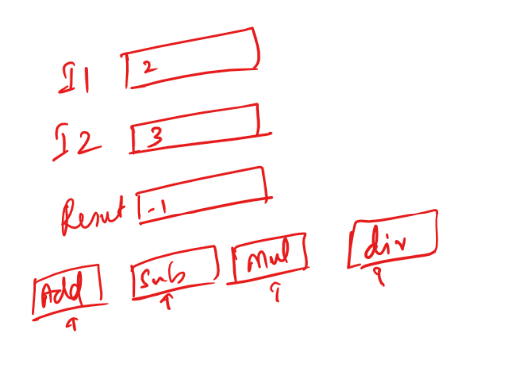 I1 2
I2 3
Result -1
Add Sub Mul div